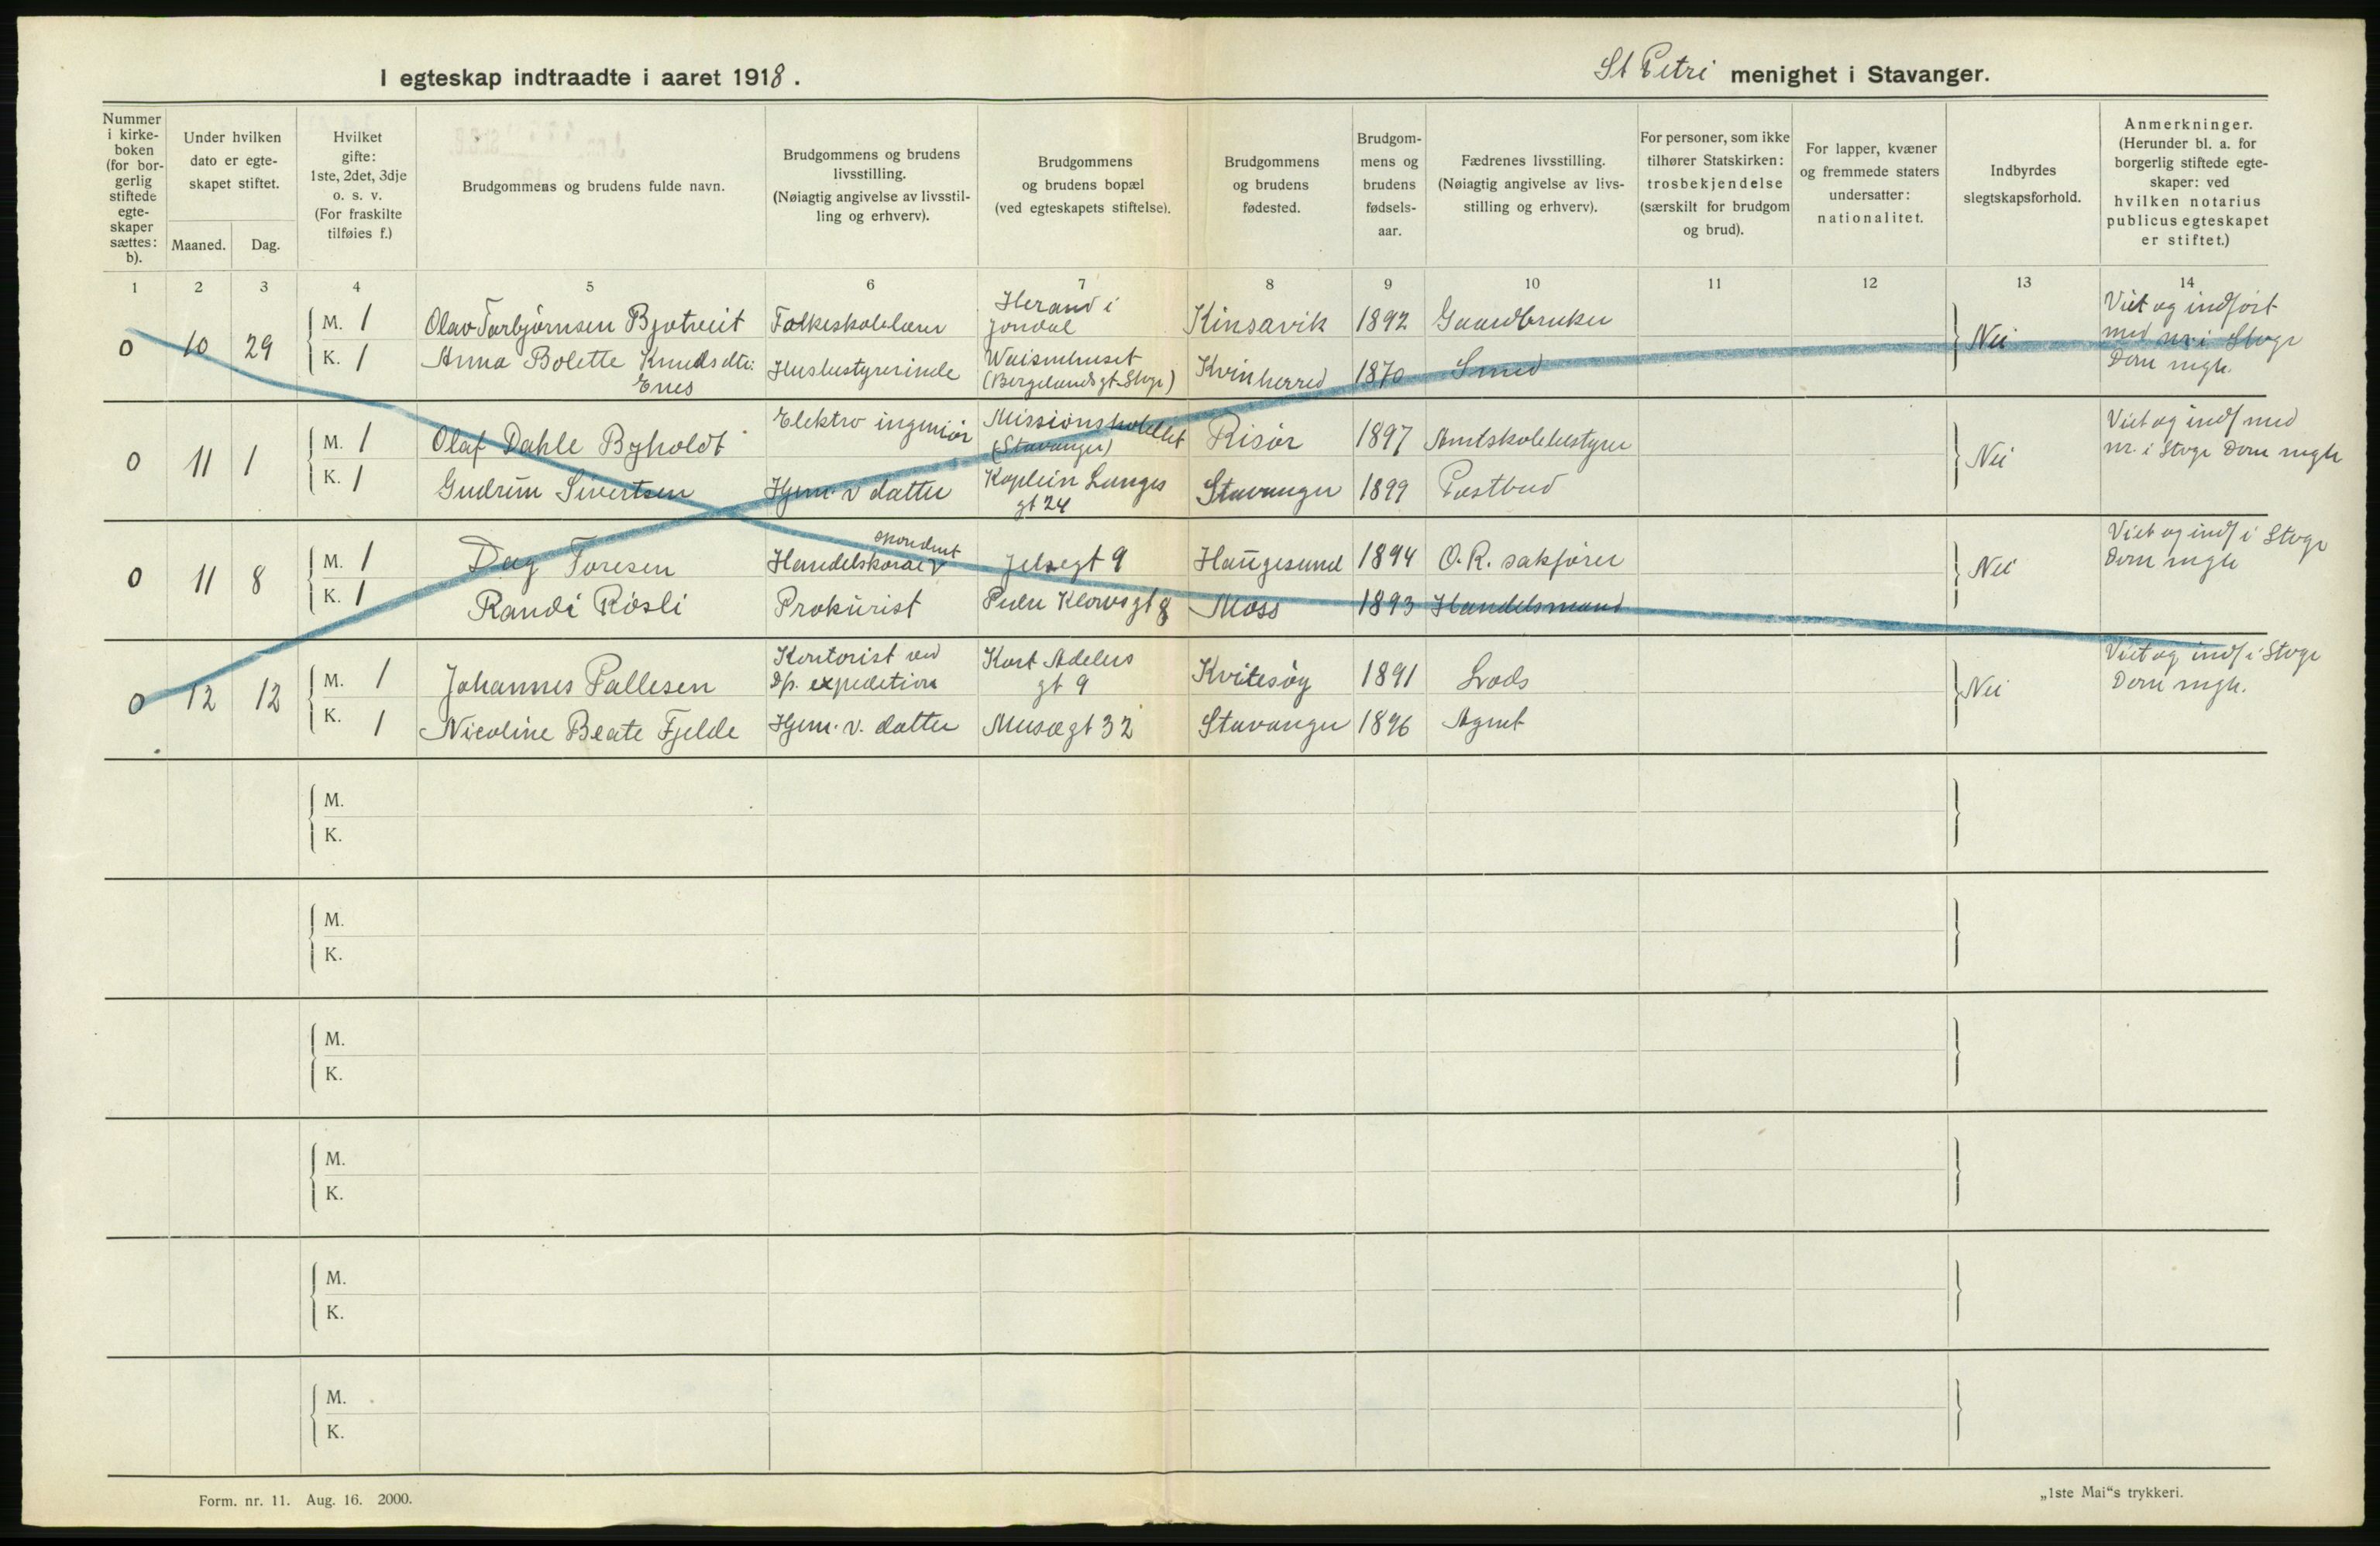 I egteskap indtraadte i aaret 1918.
St Petri menighet i Stavanger.
Nummer i kirke-boken (for bor-gerlig stiftede egte-skaper sættes: b).
Under hvilken dato er egte-skapet stiftet.
Maaned. Dag.
Hvilket gifte: 1ste, 2det, 3dje o. s. v. (For fraskilte tilføies f.)
Brudgommens og brudens fulde navn.
Brudgommens og brudens livsstilling. (Nøiagtig angivelse av livsstil-ling og erhverv).
Brudgommens og brudens bopæl (ved egteskapets stiftelse).
Brudgommens og brudens fødested.
Brudgom-mens og brudens fødsels-aar.
Fædrenes livsstilling. (Nøiagtig angivelse av livs-stilling og erhverv).
For personer, som ikke tilhører Statskirken: trosbekjendelse (særskilt for brudgom og brud).
For lapper, kvæner og fremmede staters undersatter: nationalitet.
Indbyrdes slegtskapsforhold.
Anmerkninger. (Herunder bl. a. for borgerlig stiftede egte-skaper: ved hvilken notarius publicus egteskapet er stiftet.)
1 2 3 4 5 6 7 8 9 10 11 12 13 14
0 10 29
M. 1 Olav Torbjörnsen Bjotveit Folkeskolelærer Herand i Jondal Kinsavik 1892 Gaardbruker
K. 1 Anna Bolette Knudsdtr: Enes Husbestyrerinde Waisenhuset (Bergelandsgt Stvgr) Kvinherred 1870 Smed
Nei
Viet og indfört med nr. i Stvgr Dom mgh.
0 11 1
M. 1 Olaf Dahle Byholdt Elektro ingeniör Missionsskolen (Stavanger) Risör 1897 Amtskolebestyrer
K. 1 Gudrun Sivertsen Hjem. v datter Kaptein Langes gt 24 Stavanger 1899 Postbud
Nei
Viet og indf med nr. i Stvgr Dom mgh
0 11 8
M. 1 Dag Toresen Jelsegt 9 Haugesund 1894 O.R. sakförer
K. 1 Randi Rösli Prokurist Peder Klowsgt 8 Moss 1893 Handelsmand
Nei
Viet og indf i Stvgr Dom mgh
0 12 12
M. 1 Johannes Pallesen Kontorist ved Dp. expedition Kort Adelers gt 9 Kvitesöy 1891 Lods
K. 1 Nicoline Beate Fjelde Hjem. v. datter Musægt 32 Stavanger 1896 Agent
Nei
Viet og indf i Stvgr Dom mgh.
M.
K.
M.
K.
M.
K.
M.
K.
M.
K.
M.
K.
Form. nr. 11. Aug. 16. 2000.
„1ste Mai“s trykkeri.